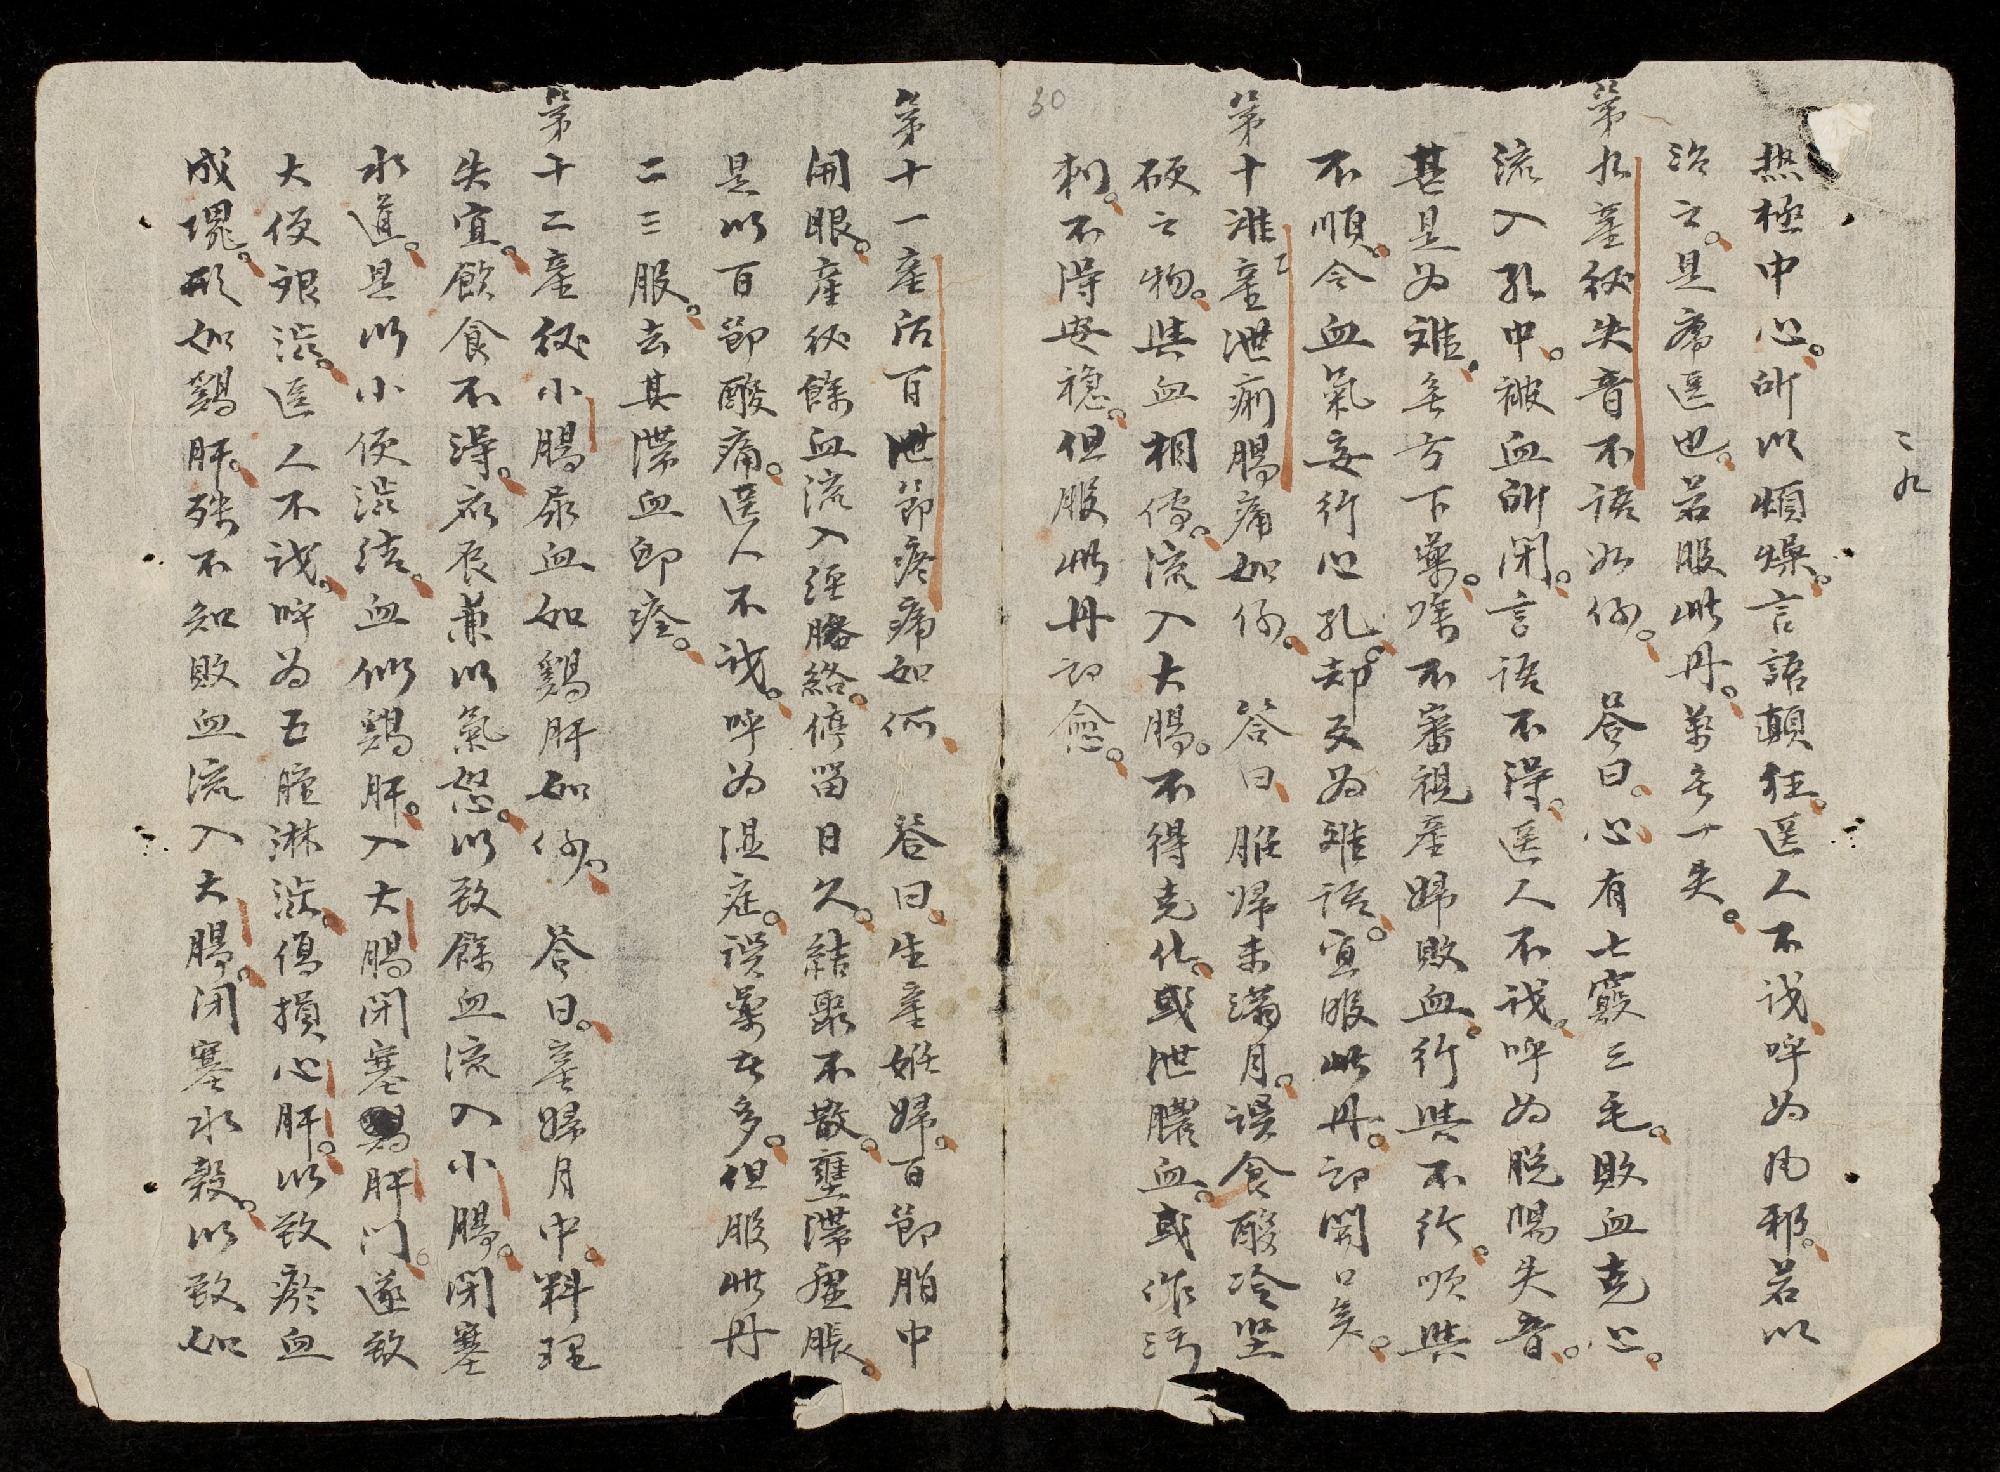 二九
热極中心。所以煩燥。言語顛狂。医人不识。呼为风邪。若以
治之。是庸医也。若服此丹。萬无一失。
第九産後失音不语如何。 荅曰。心有七竅三毛。敗血克心。
流入孔中。被血所闭。言语不淂。医人不识。呼为脱陽失音。
甚是为难。无方下藥。嗟不審視産婦敗血。行與不行。顺與
不順。令血氣妄行心孔。却又为难语。宜服此丹。即開口矣。
第十 産泄痢腸痛如何。 荅曰。胎婦未满月。误食酸冷坚
硬之物。與血相傳。流入大腸。不得克化。或泄膿血。或作污
刺。不淂安稳。但服此丹即愈。
30
第十一産后百泄節疼痛如何 荅曰。生産婦。百節胎中
開眼。産後餘血流入經胳絡。停留日久。結聚不散。壅滯虚脹。
是以百節酸痛。医人不识。呼为湿症。误藥甚多。但服此丹
二三服。去其滯血即痊。
第十二産後小腸尿血如鷄肝如何。 荅曰。産婦月中。料理
失宜。飲食不淂。衣衣兼以氣怒。以致餘血流入小腸。闭塞
水道。是以小便澁結。血似鷄肝。入大腸闭塞 肝门。遂致
大便艰澁。医人不识。呼为五膻淋澁。傷損心肝。以致瘀血
成瑰。形如鷄肝。殊不知敗血流入大腸。闭塞水穀。以致如